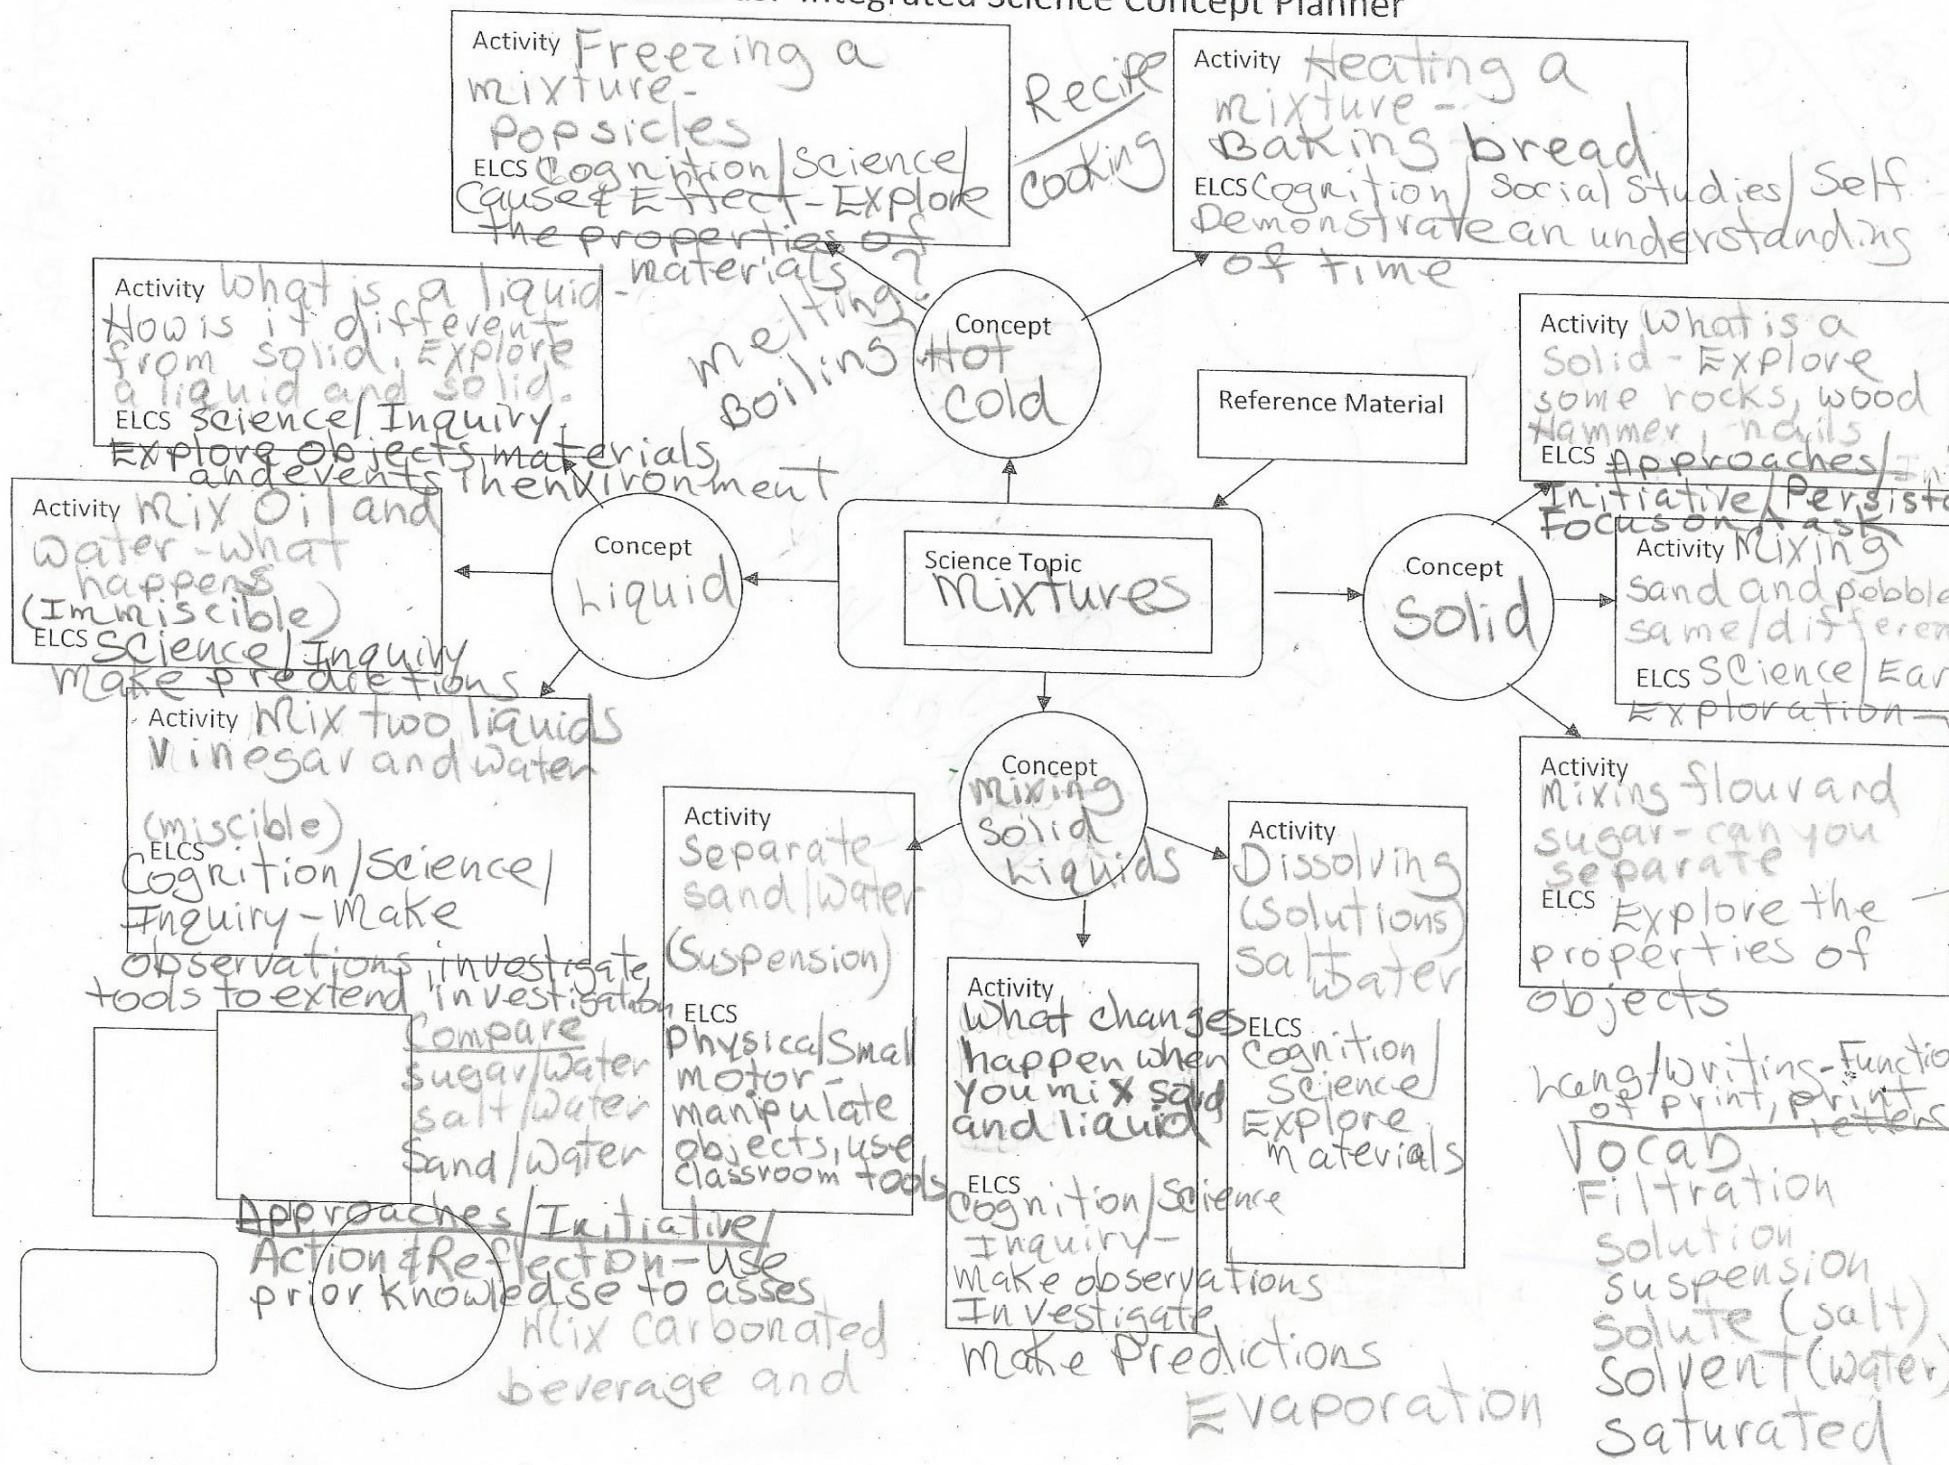 Integrated Science Concept Planner
Activity Freezing a
mixture-
popsicles
ELCS Cognition/Science/
Cause & Effect-Explore
the properties of
materials?
Recipe
cooking
Activity Heating a
mixture-
Baking bread
ELCS Cognition/Social Studies/Self
Demonstrate an understanding
of time
Activity What is a liquid-
How is it different
from solid. Explore
a liquid and solid.
ELCS Science/Inquiry
Explore objects, materials,
and events in environment
melting
Boiling
Concept
Hot
Cold
Reference Material
Activity What is a
Solid-Explore
some rocks, wood
Hammer, nails
ELCS Approaches/
Initiative/Persist
Focus on task
Activity Mix Oil and
Water-what
happens
(Immiscible)
ELCS Science/Inquiry
Make predictions
Concept
Liquid
Science Topic
Mixtures
Concept
Solid
Activity Mixing
sand and pebble
same/differen
ELCS Science/Ear
Exploration-
Activity Mix two liquids
Vinegar and water
(miscible)
ELCS
Cognition/Science/
Inquiry-Make
observations, investigate,
tools to extend investigation
Concept
Mixing
Solid
Liquids
Activity
Mixing flour and
sugar-can you
separate
ELCS Explore the
properties of
objects
Activity
Separate
sand/water
(Suspension)
ELCS
Physical/Small
motor-
manipulate
objects, use
classroom tools
Activity
What changes
happen when
you mix solid
and liquid
ELCS
Cognition/Science
Inquiry-
Make observations
Investigate
Make Predictions
Activity
Dissolving
(Solutions)
Salt
Water
ELCS
Cognition/
Science/
Explore
materials
Compare
sugar/water
salt/water
Sand/water
Approaches/Initiative/
Action & Reflection-Use
prior knowledge to asses
Mix carbonated
beverage and
Evaporation
Lang/Writing-Functio
of print, print
letters
Vocab
Filtration
Solution
suspension
Solute (salt)
Solvent (water)
Saturated